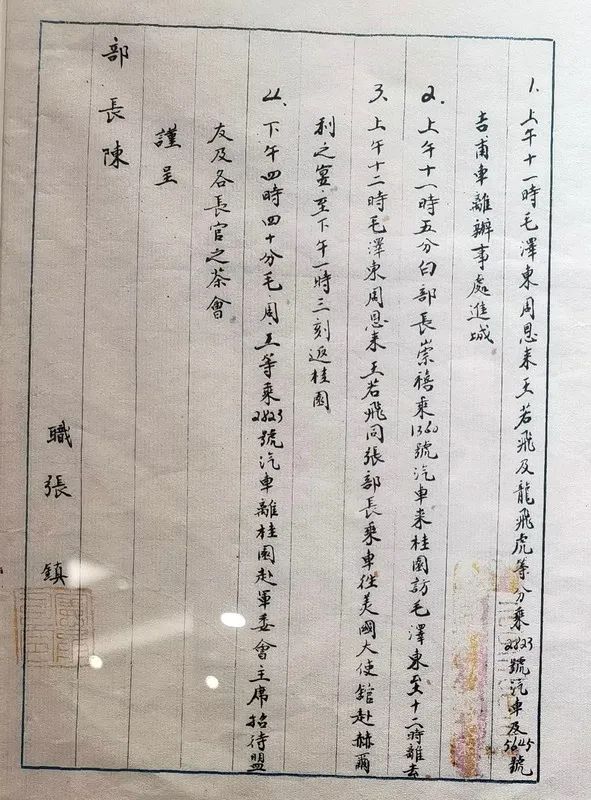 1. 上午十一時毛澤東周恩来王若飛及龍飛虎等分乘2823號汽車及5645號
吉甫車離辦事處進城
2. 上午十一時五分白部長崇禧乘1360號汽車来桂園訪毛澤東至十二時離去
3. 上午十二時毛澤東周恩来王若飛同張部長乘車往美國大使館赴赫爾
利之宴至下午一時三刻返桂園
4. 下午四時四十分毛、周、王等乘2823號汽車離桂園赴軍委會主席招待盟
友及各長官之茶會
謹呈
部長陳
職張鎮